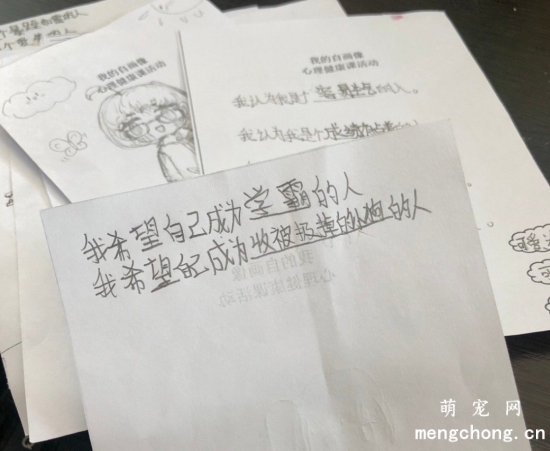 我的自画像
心理健康课活动
我的自画像
心理健康课活动
我认为我是个容易生气的人。
我认为我是个成绩
我希望自己成为学霸的人
我希望自己成为收被扔掉的小狗的人
我的自画像
心理健康课活动
萌宠网
mengchong.cn